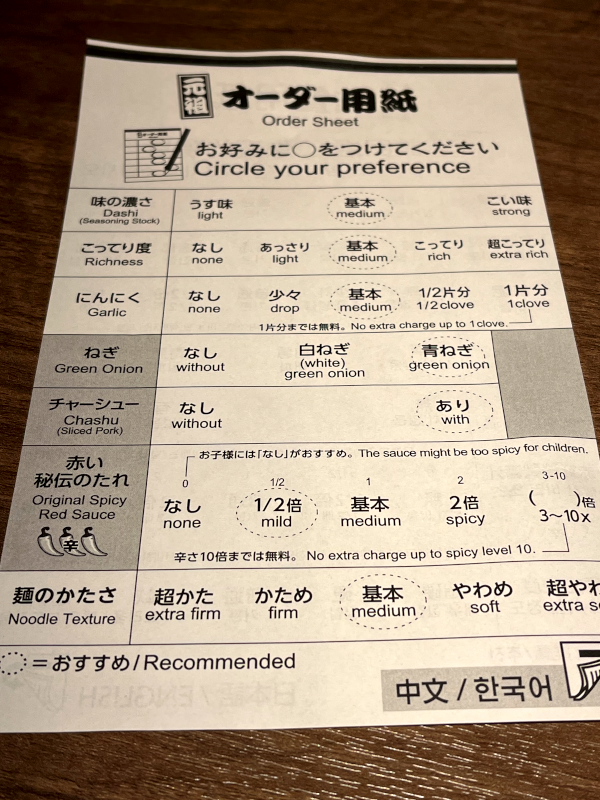 元祖 オーダー用紙
Order Sheet
お好みに○をつけてください
Circle your preference
味の濃さ うす味 基本 こい味
Dashi light medium strong
(Seasoning Stock)
こってり度 なし あっさり 基本 こってり 超こってり
Richness none light medium rich extra rich
にんにく なし 少々 基本 1/2片分 1片分
Garlic none drop medium 1/2clove 1clove
1片分までは無料。No extra charge up to 1clove.
ねぎ なし 白ねぎ 青ねぎ
Green Onion without (white) green onion green onion
チャーシュー なし あり
Chashu without with
(Sliced Pork)
お子様には「なし」がおすすめ。The sauce might be too spicy for children.
赤い 0 1/2 1 2 3-10
秘伝のたれ なし 1/2倍 基本 2倍 ( )倍
Original Spicy none mild medium spicy 3～10x
Red Sauce
辛
辛さ10倍までは無料。No extra charge up to spicy level 10.
麺のかたさ 超かた かため 基本 やわめ 超やわ
Noodle Texture extra firm firm medium soft extra
=おすすめ/Recommended
中文 / 한국어
日本語 / ENGLISH